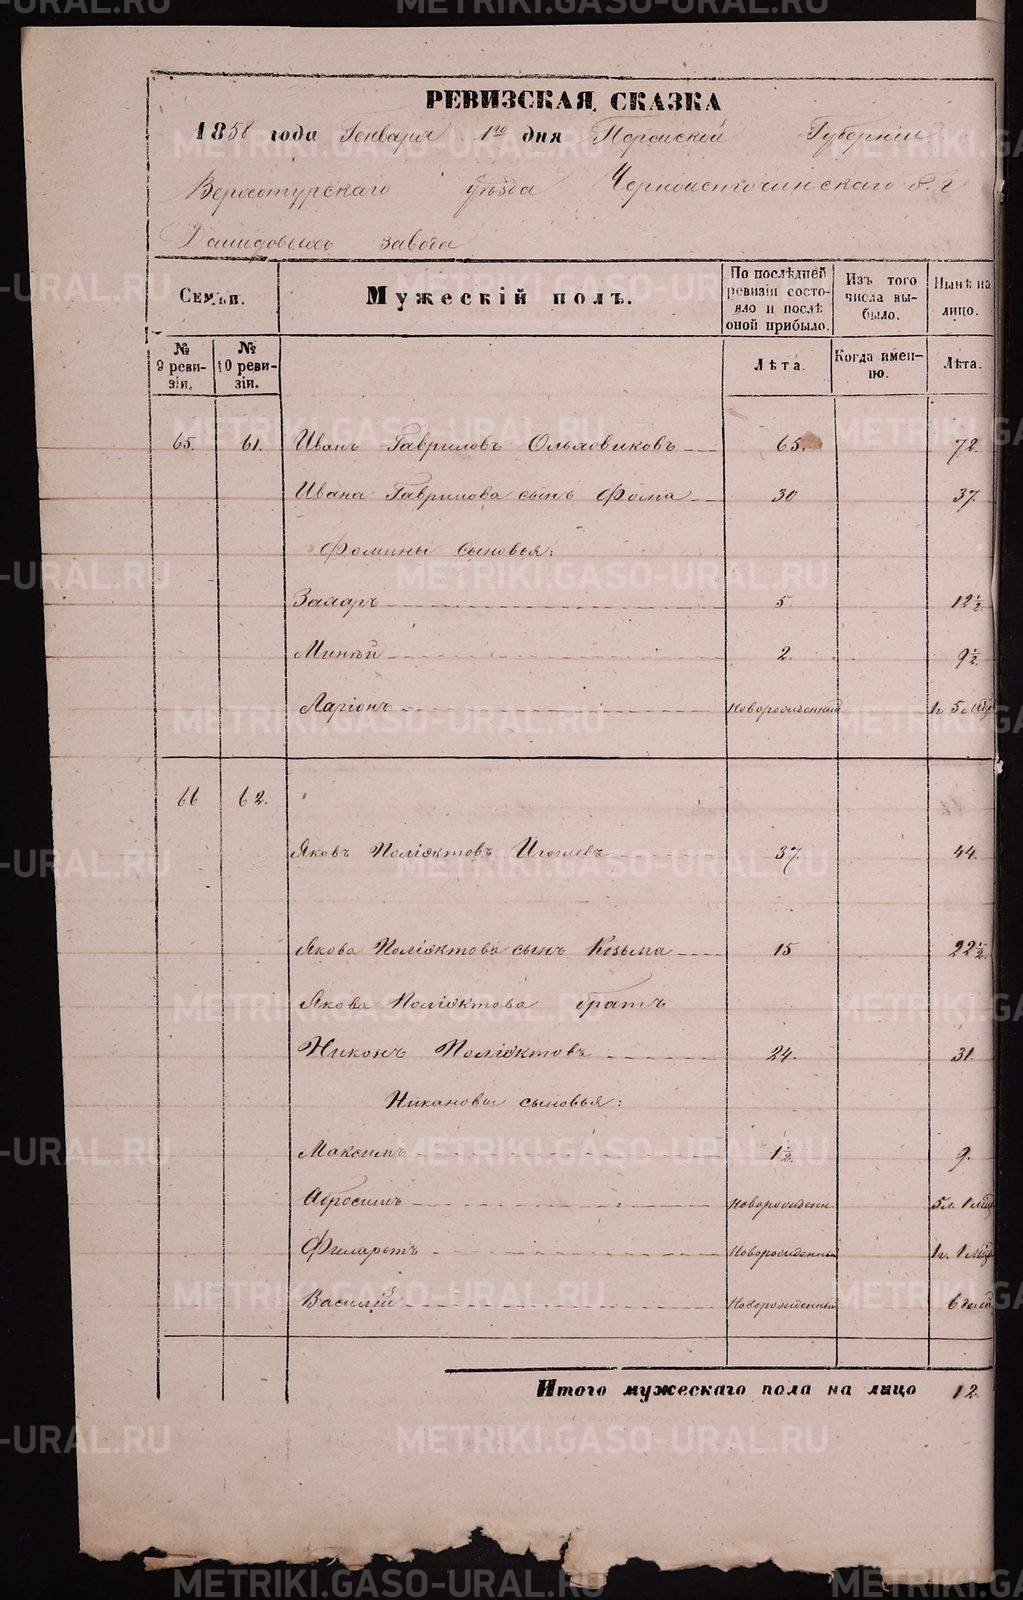 РЕВИЗСКАЯ СКАЗКА
1858 года Генваря 1го дня Пермской Губернии
Верхотурскаго уѣзда Черноисточинскаго г. г.
Демидовыхъ завода
Семьи.
Мужескій полъ.
По послѣдней ревизіи состояло и послѣ оной прибыло.
Изъ того числа выбыло.
Нынѣ на лицо.
№ 9 ревизіи,
№ 10 ревизіи.
Лѣта.
Когда именно.
Лѣта.
65. 61. Иванъ Гавриловъ Ольховиковъ 65. 72.
Ивана Гаврилова сынъ Фома 30 37.
Фомины сыновья:
Захаръ 5. 12½
Минѣй 2. 9½
Ларіонъ Новорожденный 1г. 5 мѣс
66 62.
Яковъ Поліэктовъ 37. 44.
Якова Поліэктова сынъ Козьма 15 22½.
Якова Поліэктова братъ
Никонъ Поліэктовъ 24. 31
Никоновы сыновья:
Максимъ 1½. 9.
Абросимъ Новорожден 5л. 1 мѣс
Филаретъ Новорожденный 1г. 1 мѣс
Василій Новорожденный 6
Итого мужескаго пола на лицо 12.
METRIKI.GASO-URAL.RU